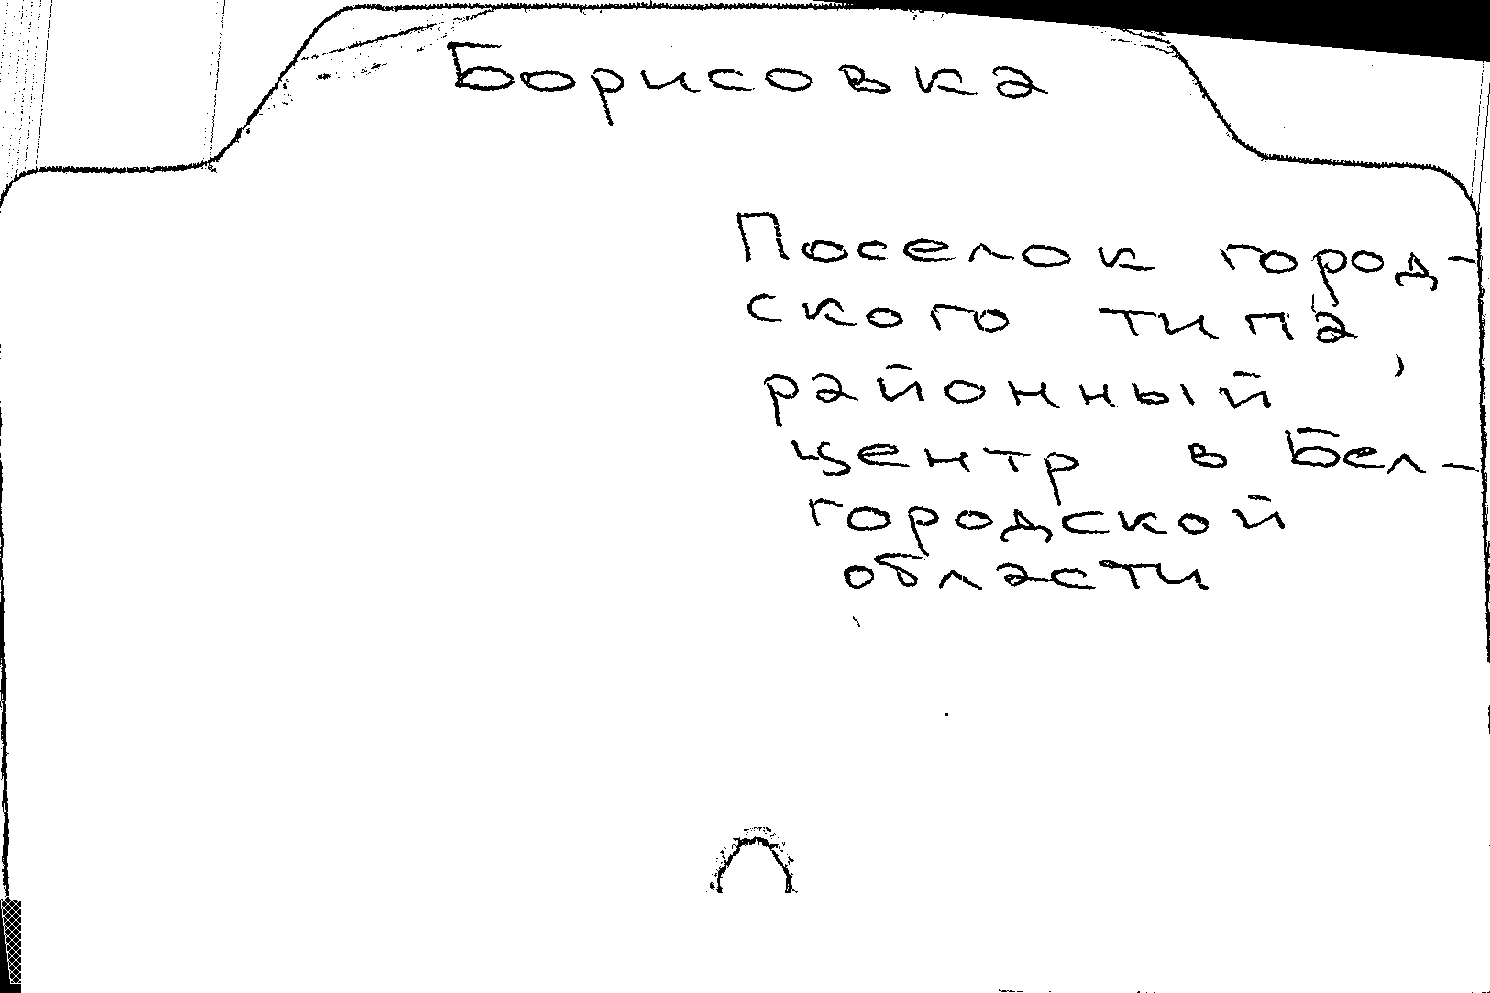 Борисовка
Поселок город-
ского типа,
районный
центр в Бел-
городской
области